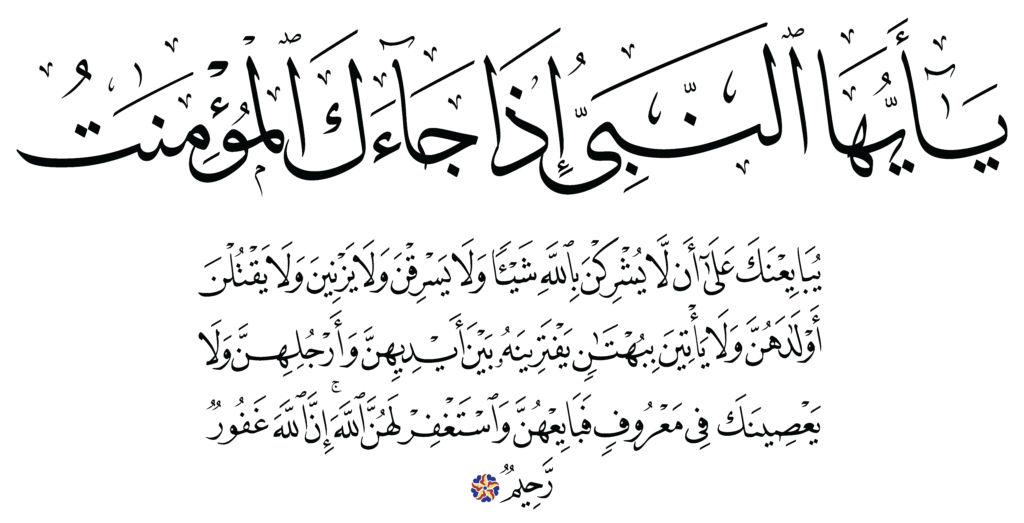 يَـٰٓأَيُّهَا ٱلنَّبِىُّ إِذَا جَآءَكَ ٱلْمُؤْمِنَـٰتُ
يُبَايِعْنَكَ عَلَىٰٓ أَن لَّا يُشْرِكْنَ بِٱللَّهِ شَيْـًٔا وَلَا يَسْرِقْنَ وَلَا يَزْنِينَ وَلَا يَقْتُلْنَ
أَوْلَـٰدَهُنَّ وَلَا يَأْتِينَ بِبُهْتَـٰنٍ يَفْتَرِينَهُۥ بَيْنَ أَيْدِيهِنَّ وَأَرْجُلِهِنَّ وَلَا
يَعْصِينَكَ فِى مَعْرُوفٍ فَبَايِعْهُنَّ وَٱسْتَغْفِرْ لَهُنَّ ٱللَّهَ ۚ إِنَّ ٱللَّهَ غَفُورٌ
رَّحِيمٌ